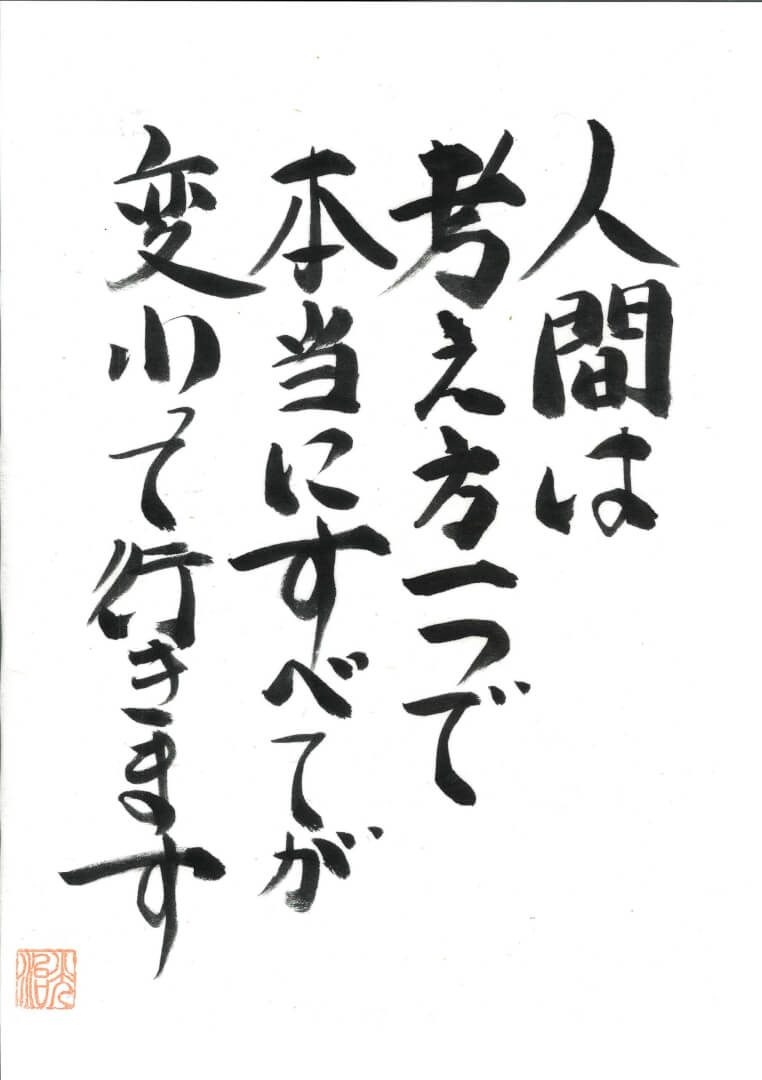 人間は
考え方一つで
本当にすべてが
変わって行きます